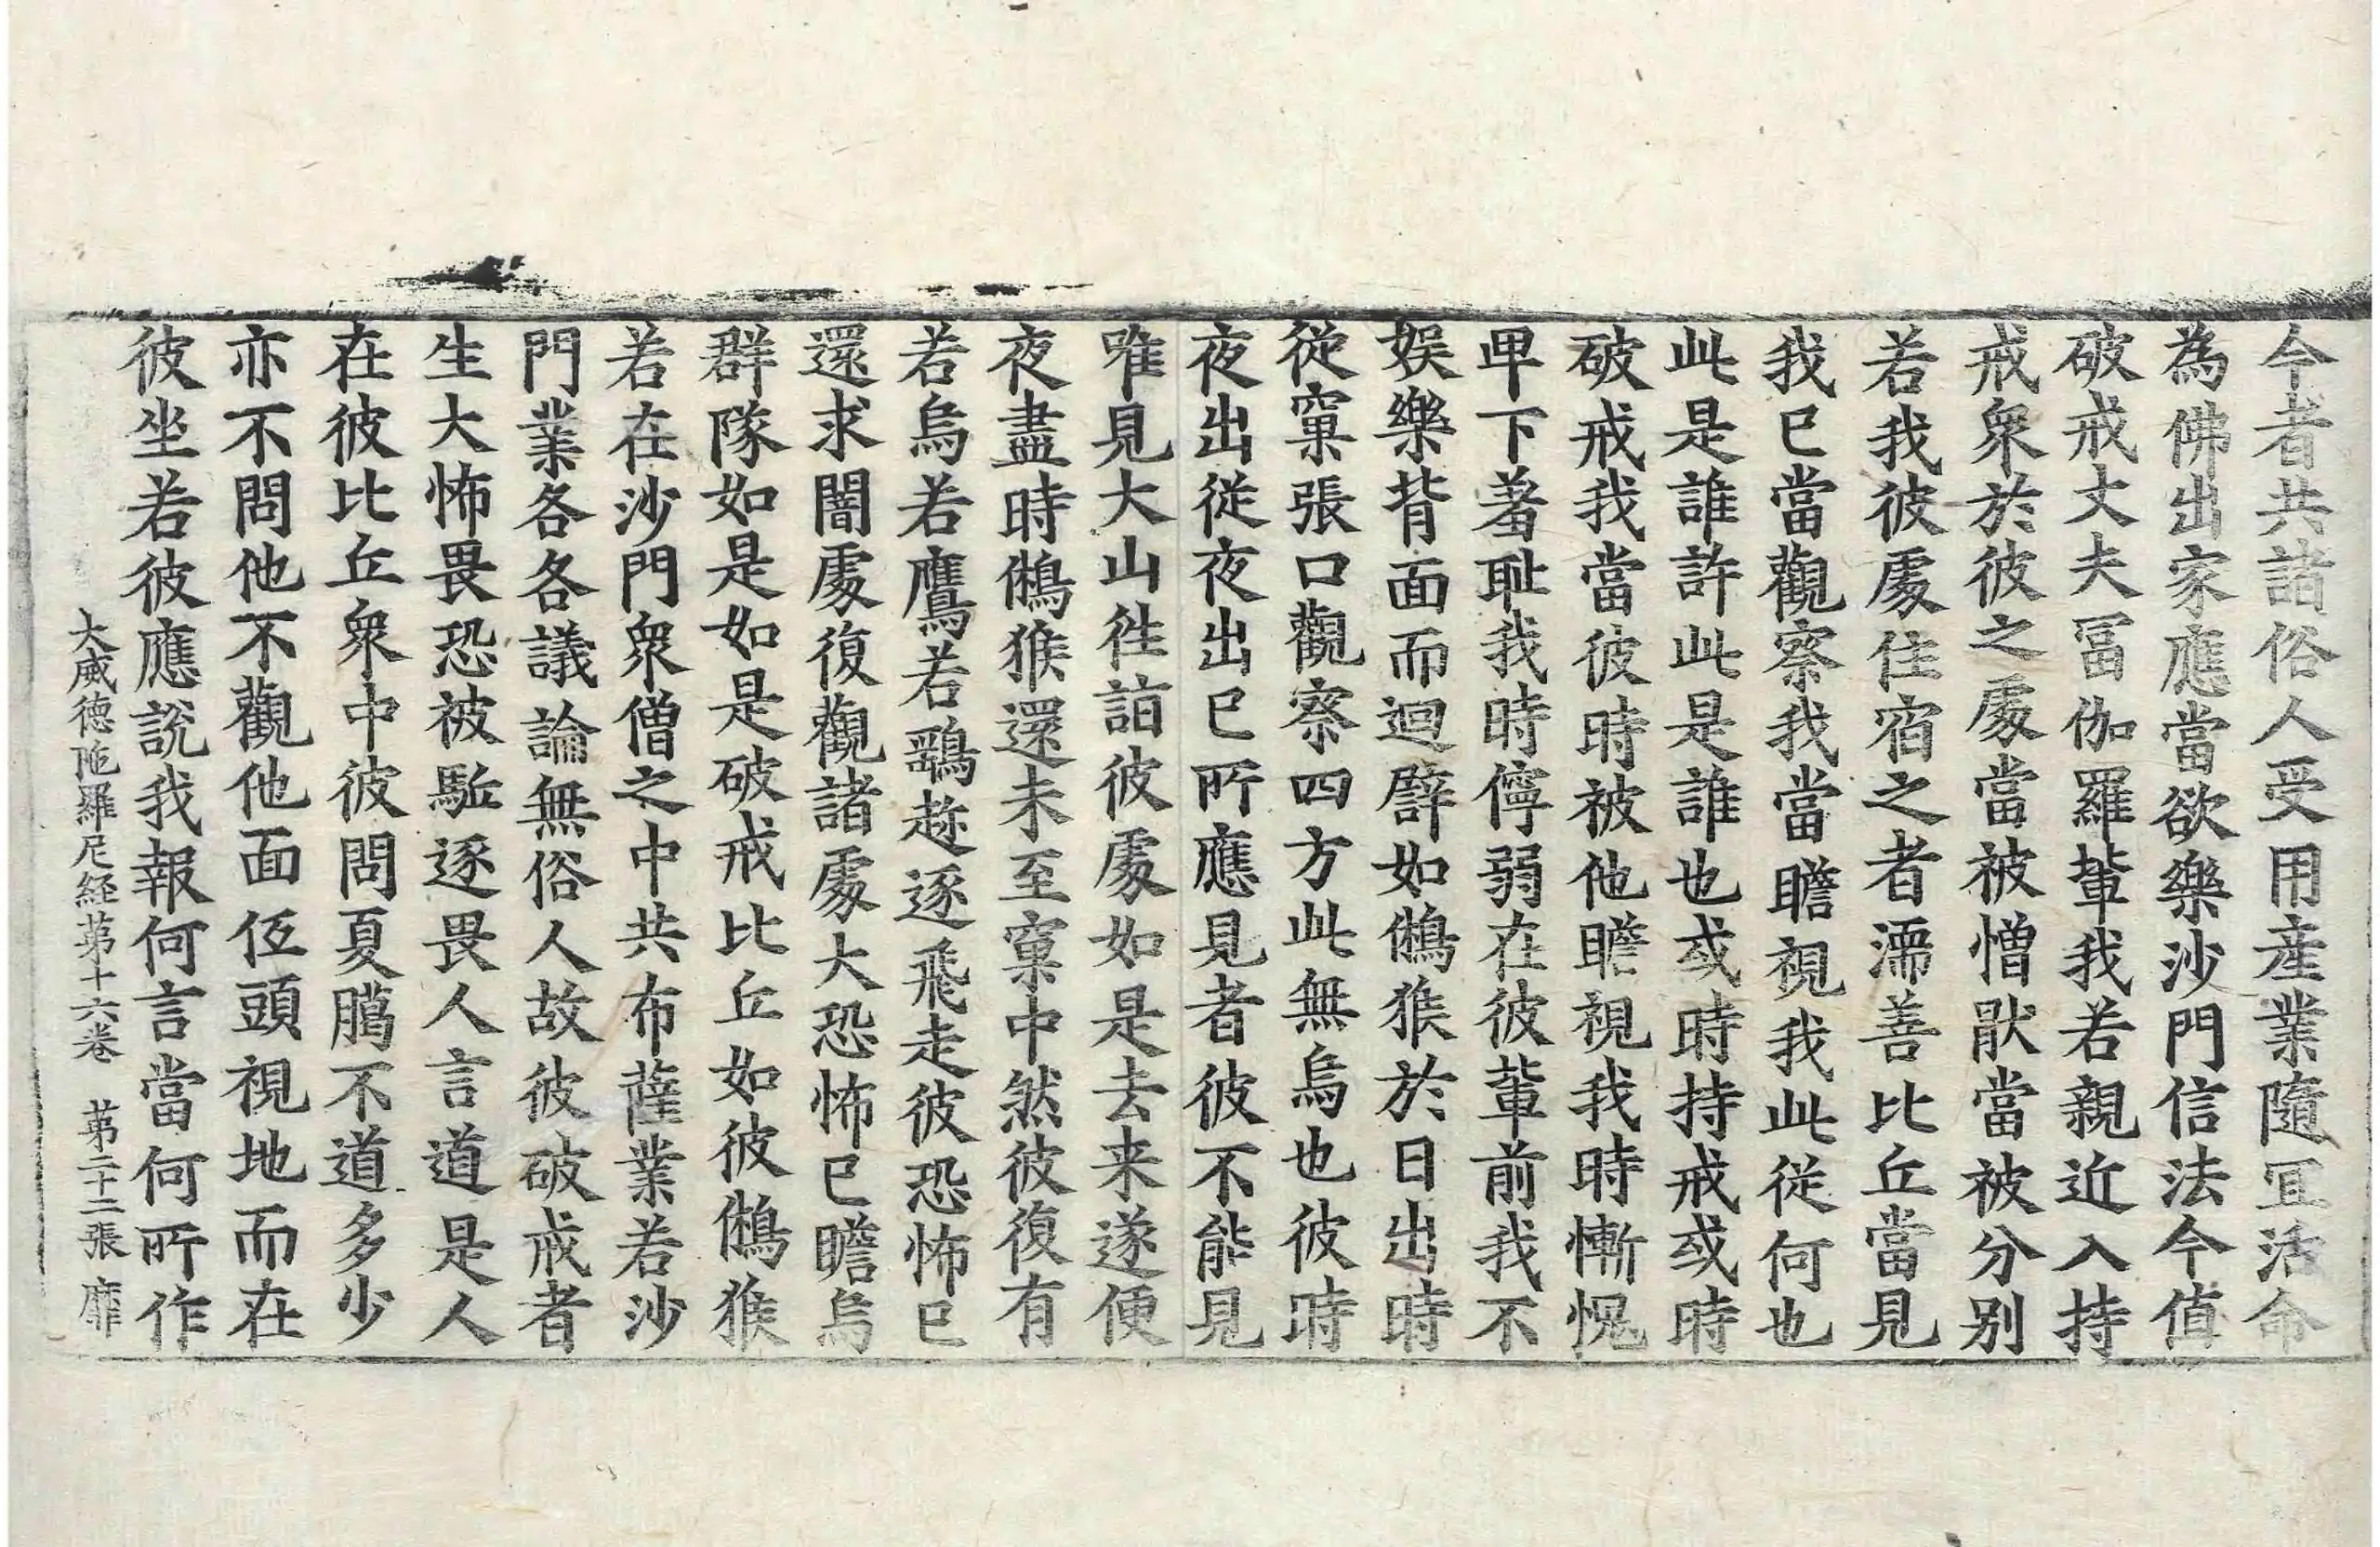 今者共諸俗人受用産業隨冝活命
為佛出家應當欲樂沙門信法今值
破戒丈夫冨伽羅輩我若親近入持
戒衆於彼之處當被憎猒當被分別
若我彼處住宿之者濡善比丘當見
我已當觀察我當瞻視我此從何也
此是誰許此是誰也或時持戒或時
破戒我當彼時被他瞻視我時慚愧
卑下羞耻我時儜弱在彼輩前我不
娛樂背面而迴譬如鵂猴於日出時
從窠張口觀察四方此無烏也彼時
夜出從夜出已所應見者彼不能見
唯見大山徃詣彼處如是去来遂便
夜盡時鵂猴還未至窠中然彼復有
若烏若鷹若鷂趂逐飛走彼恐怖已
還求闇處復觀諸處大恐怖已瞻烏
群隊如是如是破戒比丘如彼鵂猴
若在沙門衆僧之中共布薩業若沙
門業各各議論無俗人故彼破戒者
生大怖畏恐被駈逐畏人言道是人
在彼比丘衆中彼問夏臈不道多少
亦不問他不觀他面伍頭視地而在
彼坐若彼應說我報何言當何所作
大威德陁羅尼経苐十六卷 苐二十二張 靡